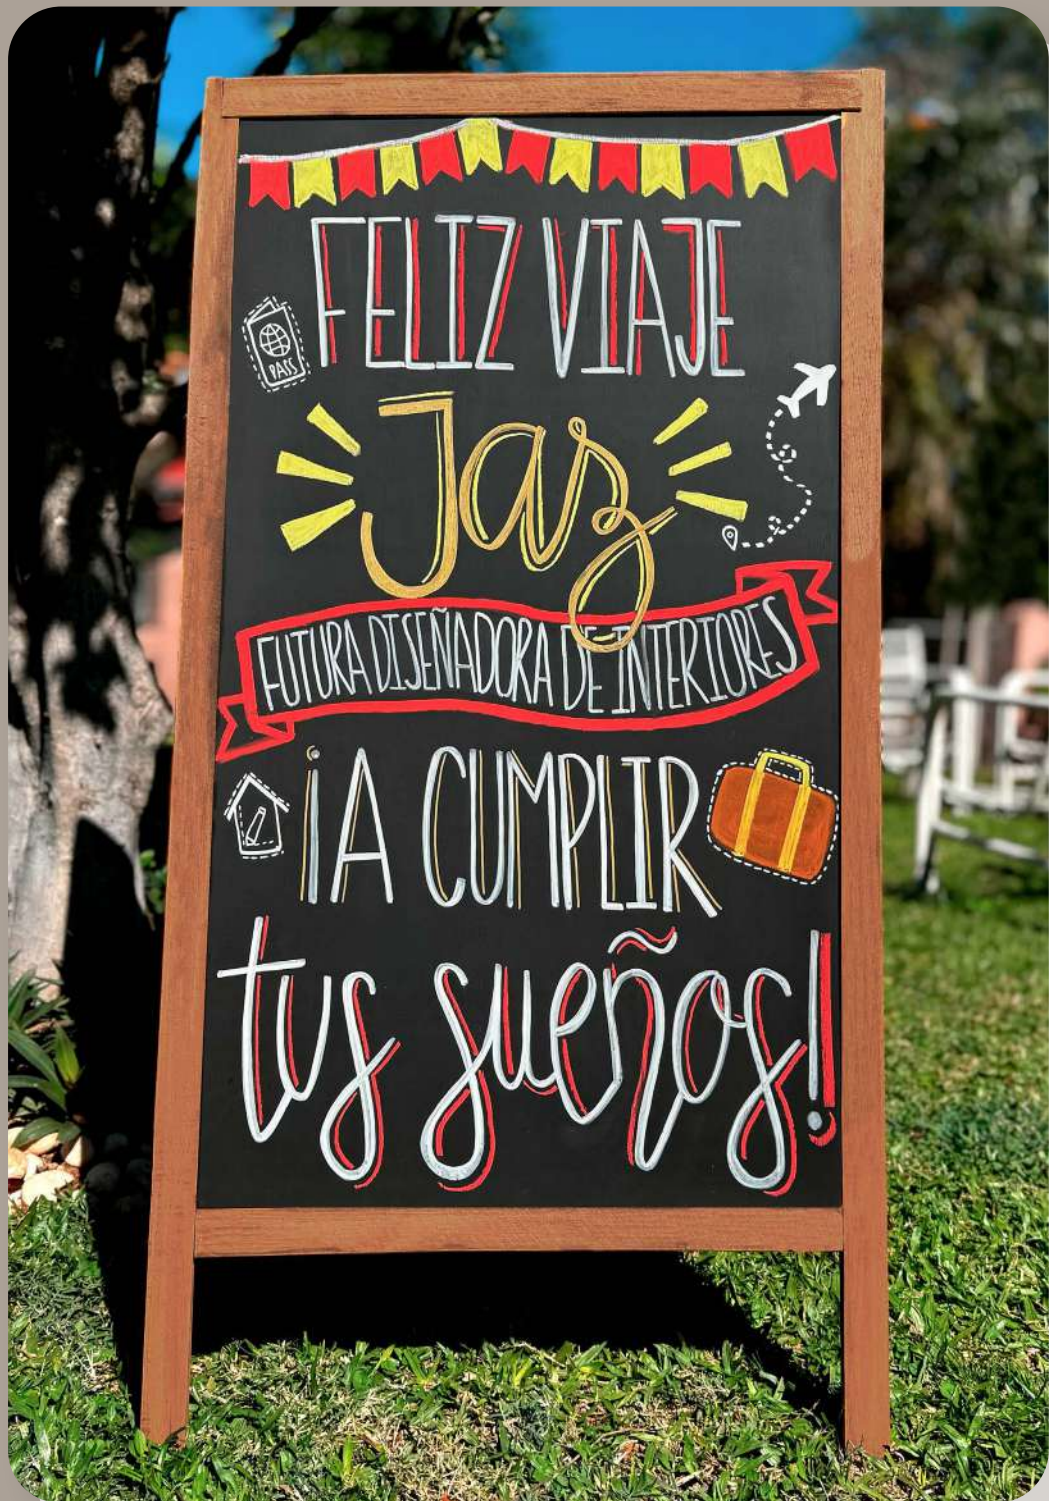 FELIZ VIAJE
PASS
Jaz
FUTURA DISEÑADORA DE INTERIORES
¡A CUMPLIR
tus sueños!